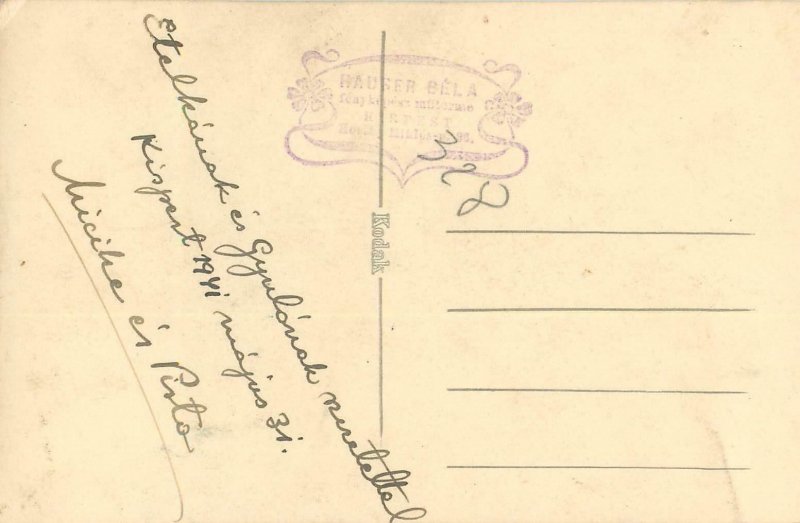 Etelkának és Gyulónak szeretettel
Kispest 1941 május 31.
Micike és Pista
HAUSER BÉLA
fényképész műterme
KISPEST
Kodak
328